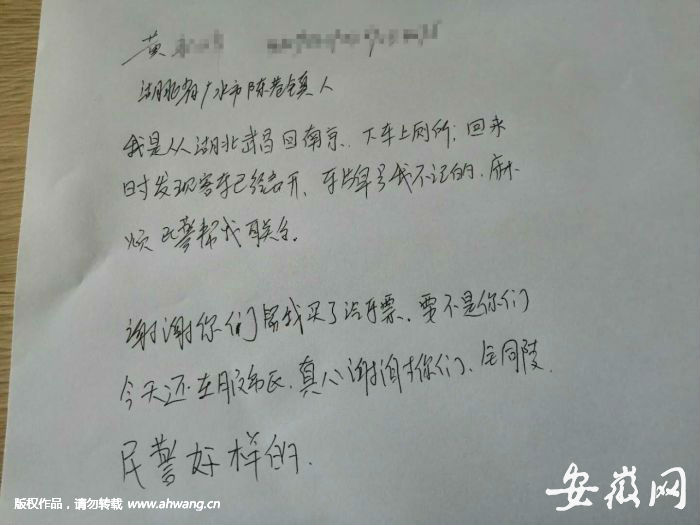 黄
湖北省广水市陈巷镇人
我是从湖北武昌回南京、下车上厕所；回来
时发现客车已经离开、车牌号我不记的、麻
烦民警帮我联系。
谢谢你们为我买了汽车票、要不是你们
今天还在服务区、真心谢谢你们、全同陵
民警好样的.
版权作品，请勿转载 www.ahwang.cn
安徽网